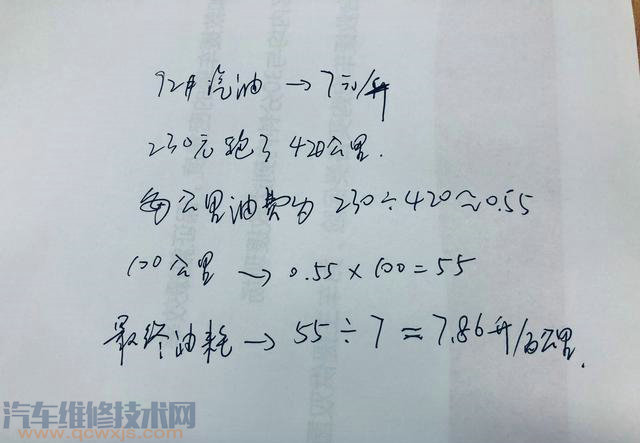 92#汽油 → 7元/升
230元跑了420公里.
每公里油费为 230÷420≈0.55
100公里 → 0.55×100=55
最终油耗 → 55÷7≈7.86升/百公里.
汽车维修技术网
www.qcwxjs.com